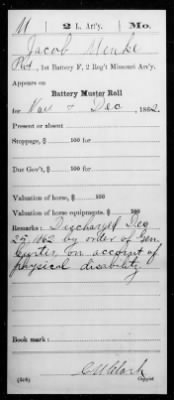 M | 2 L. Art'y. | Mo.
Jacob Menke
Pvt, 1st Battery F, 2 Reg't Missouri Art'y.
Appears on
Battery Muster Roll
for Nov & Dec, 1862.
Present or absent
Stoppage, $ 100 for
Due Gov't, $ 100 for
Valuation of horse, $ 100
Valuation of horse equipments, $ 100
Remarks: Discharged Dec
25 1862 by order of Gen.
Curtis, on account of
physical disability
Book mark:
C W Clark
(858) Copyist.